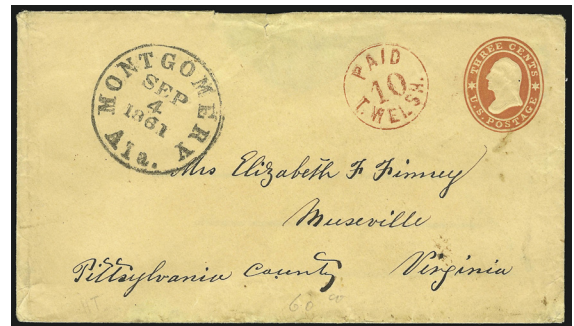 MONTGOMERY
SEP
4
1861
Ala.
PAID
10
T. WELSH.
THREE CENTS
U.S. POSTAGE
Mrs Elizabeth F Finney
Museville
Pittsylvania County Virginia